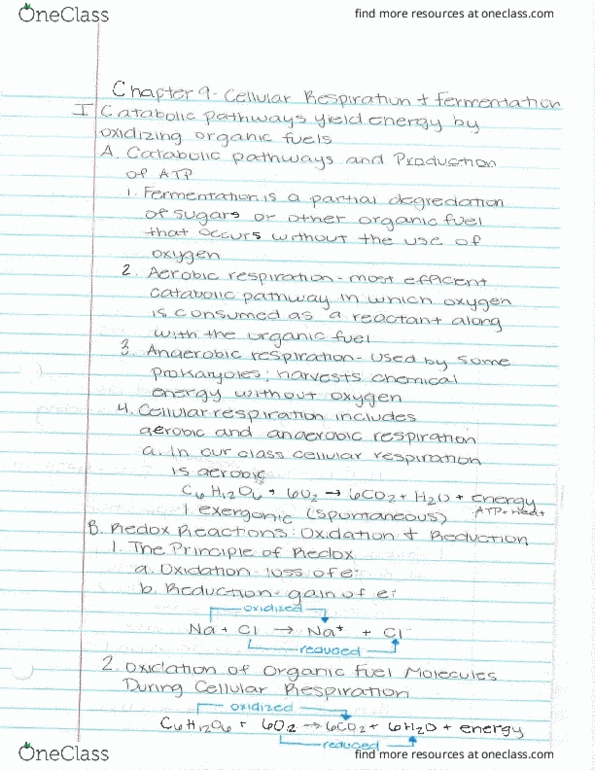 OneClass
find more resources at oneclass.com
Chapter 9 - Cellular Respiration + fermentation
I Catabolic pathways yield energy by
oxidizing organic fuels
A. Catabolic pathways and Production
of ATP
1. Fermentation is a partial degredation
of sugars or other organic fuel
that occurs without the use of
oxygen
2. Aerobic respiration - most efficient
catabolic pathway in which oxygen
is consumed as a reactant along
with the organic fuel
3. Anaerobic respiration - used by some
prokaryoles; harvests chemical
energy without oxygen
4. Cellular respiration includes
aerobic and anaerobic respiration
a. In our class cellular respiration
is aerobic
C6H12O6 + 6O2 → 6CO2 + H2O + energy
ATP + heat
! exergonic (spontaneous)
B. Redox Reactions: Oxidation + Reduction
1. The Principle of Redox
a. Oxidation - loss of e-
b. Reduction - gain of e-
oxidized
Na + Cl → Na+ + Cl-
reduced
2. Oxidation of Organic Fuel Molecules
During Cellular Respiration
oxidized
C6H12O6 + 6O2 → 6CO2 + 6H2O + energy
reduced
OneClass
find more resources at oneclass.com